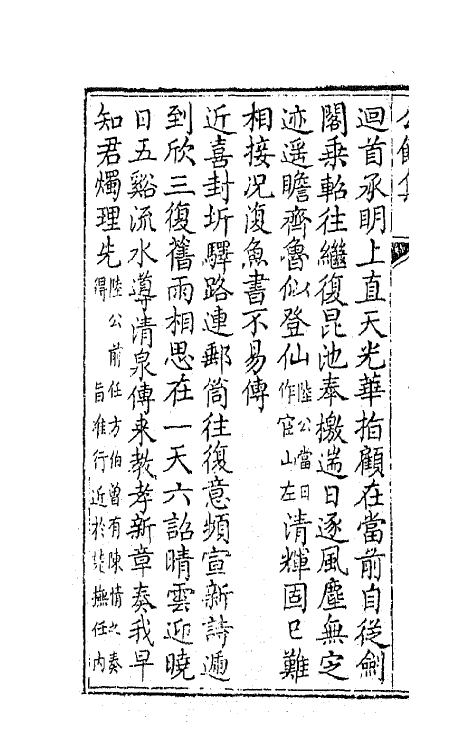 迴首承明上直天光華指顧在當前自從劍
閣乘軺往繼復昆池奉檄遄日逐風塵無定
迹遥瞻齊魯似登仙陸公當日作宦山左清輝固已難
相接况復魚書不易傳
近喜封圻驛路連郵筒往復意頻宣新詩遞
到欣三復舊雨相思在一天六詔晴雲迎曉
日五谿流水導清泉傳来教孝新章奏我早
知君燭理先陸公前任方伯曾有陳情之奏得旨准行近於楚撫任内